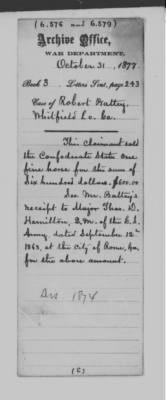 (6.576 and 6.579)
Archive Office,
WAR DEPARTMENT,
October 31, 1877.
Book 3 Letters Sent, page 243
Case of Robert Battey,
Whitfield Co. Ga.
This Claimant sold
the Confederate State one
fine horse for the sum of
Six hundred dollars. $600.00
See Mr. Battey's
receipt to Major Thos. D.
Hamilton, Q.M. of the C.S.
Army, dated September 12th
1863, at the city of Rome, Ga.
for the above amount.
1874